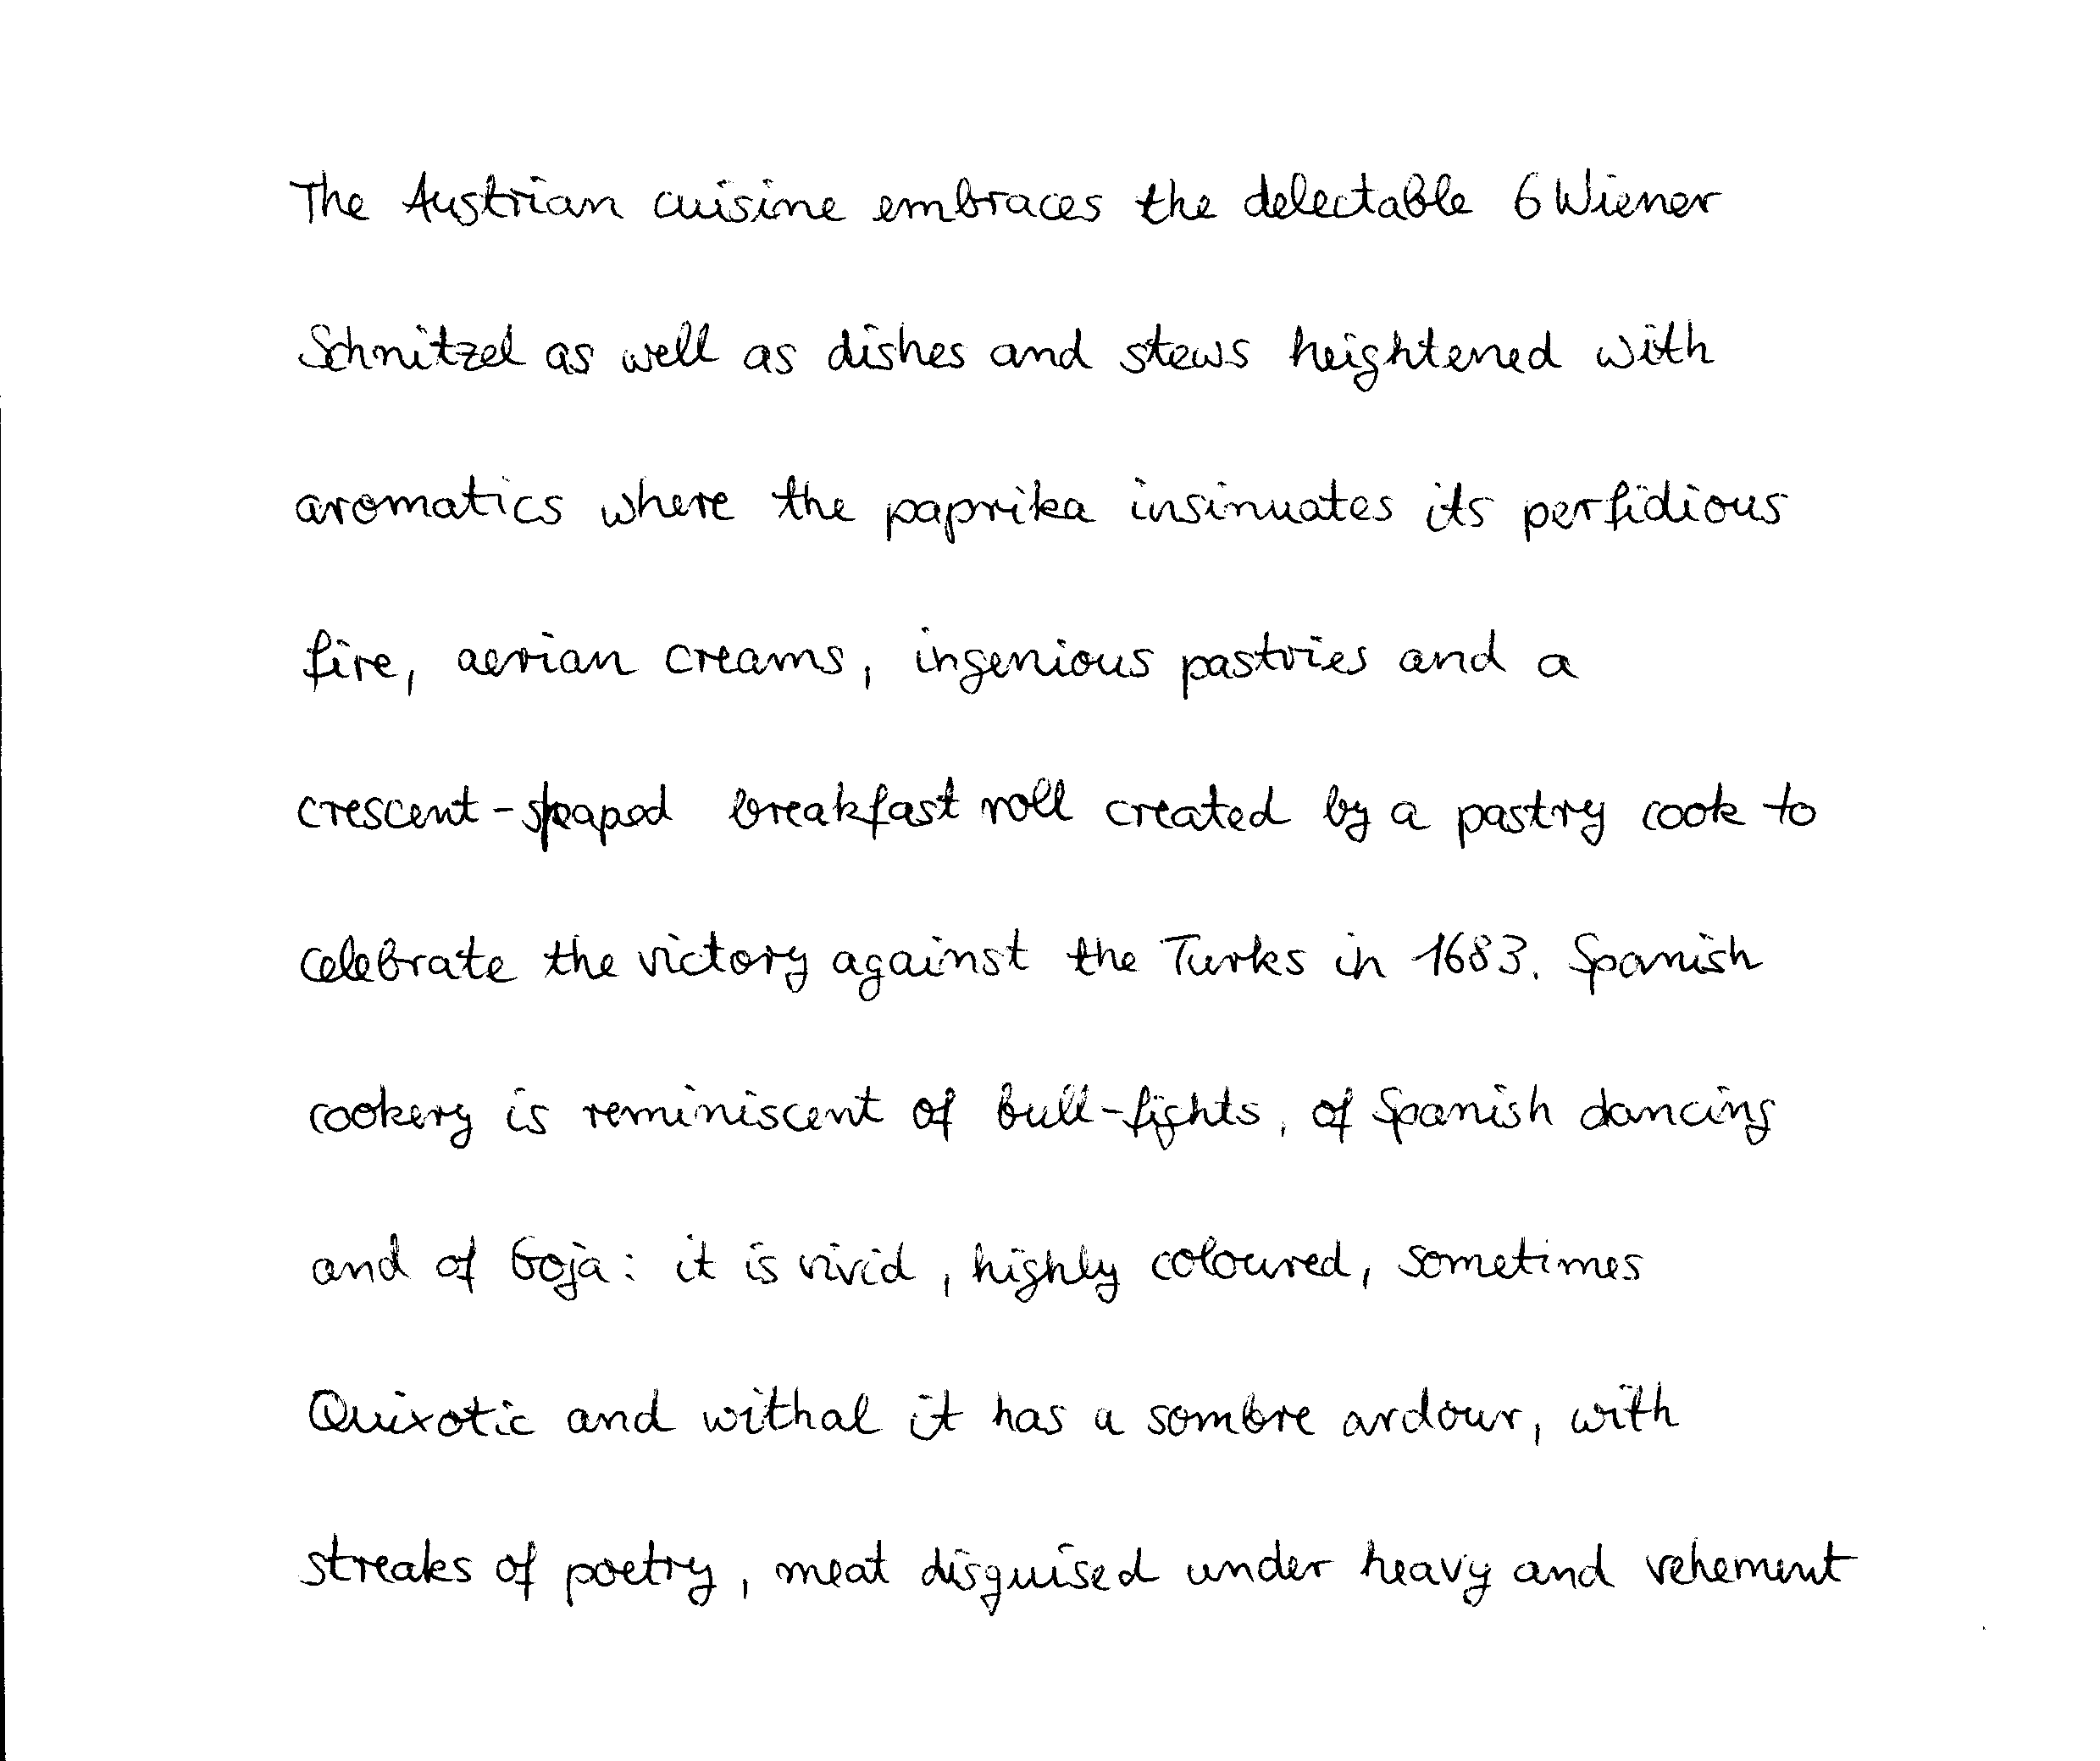 The Austrian cuisine embraces the delectable 6 Wiener
Schnitzel as well as dishes and stews heightened with
aromatics where the paprika insinuates its perfidious
fire, aerian creams, ingenious pastries and a
crescent-shaped breakfast roll created by a pastry cook to
celebrate the victory against the Turks in 1683. Spanish
cookery is reminiscent of bull-fights, of Spanish dancing
and of Goja: it is vivid, highly coloured, sometimes
Quixotic and withal it has a sombre ardour, with
streaks of poetry, meat disguised under heavy and vehement